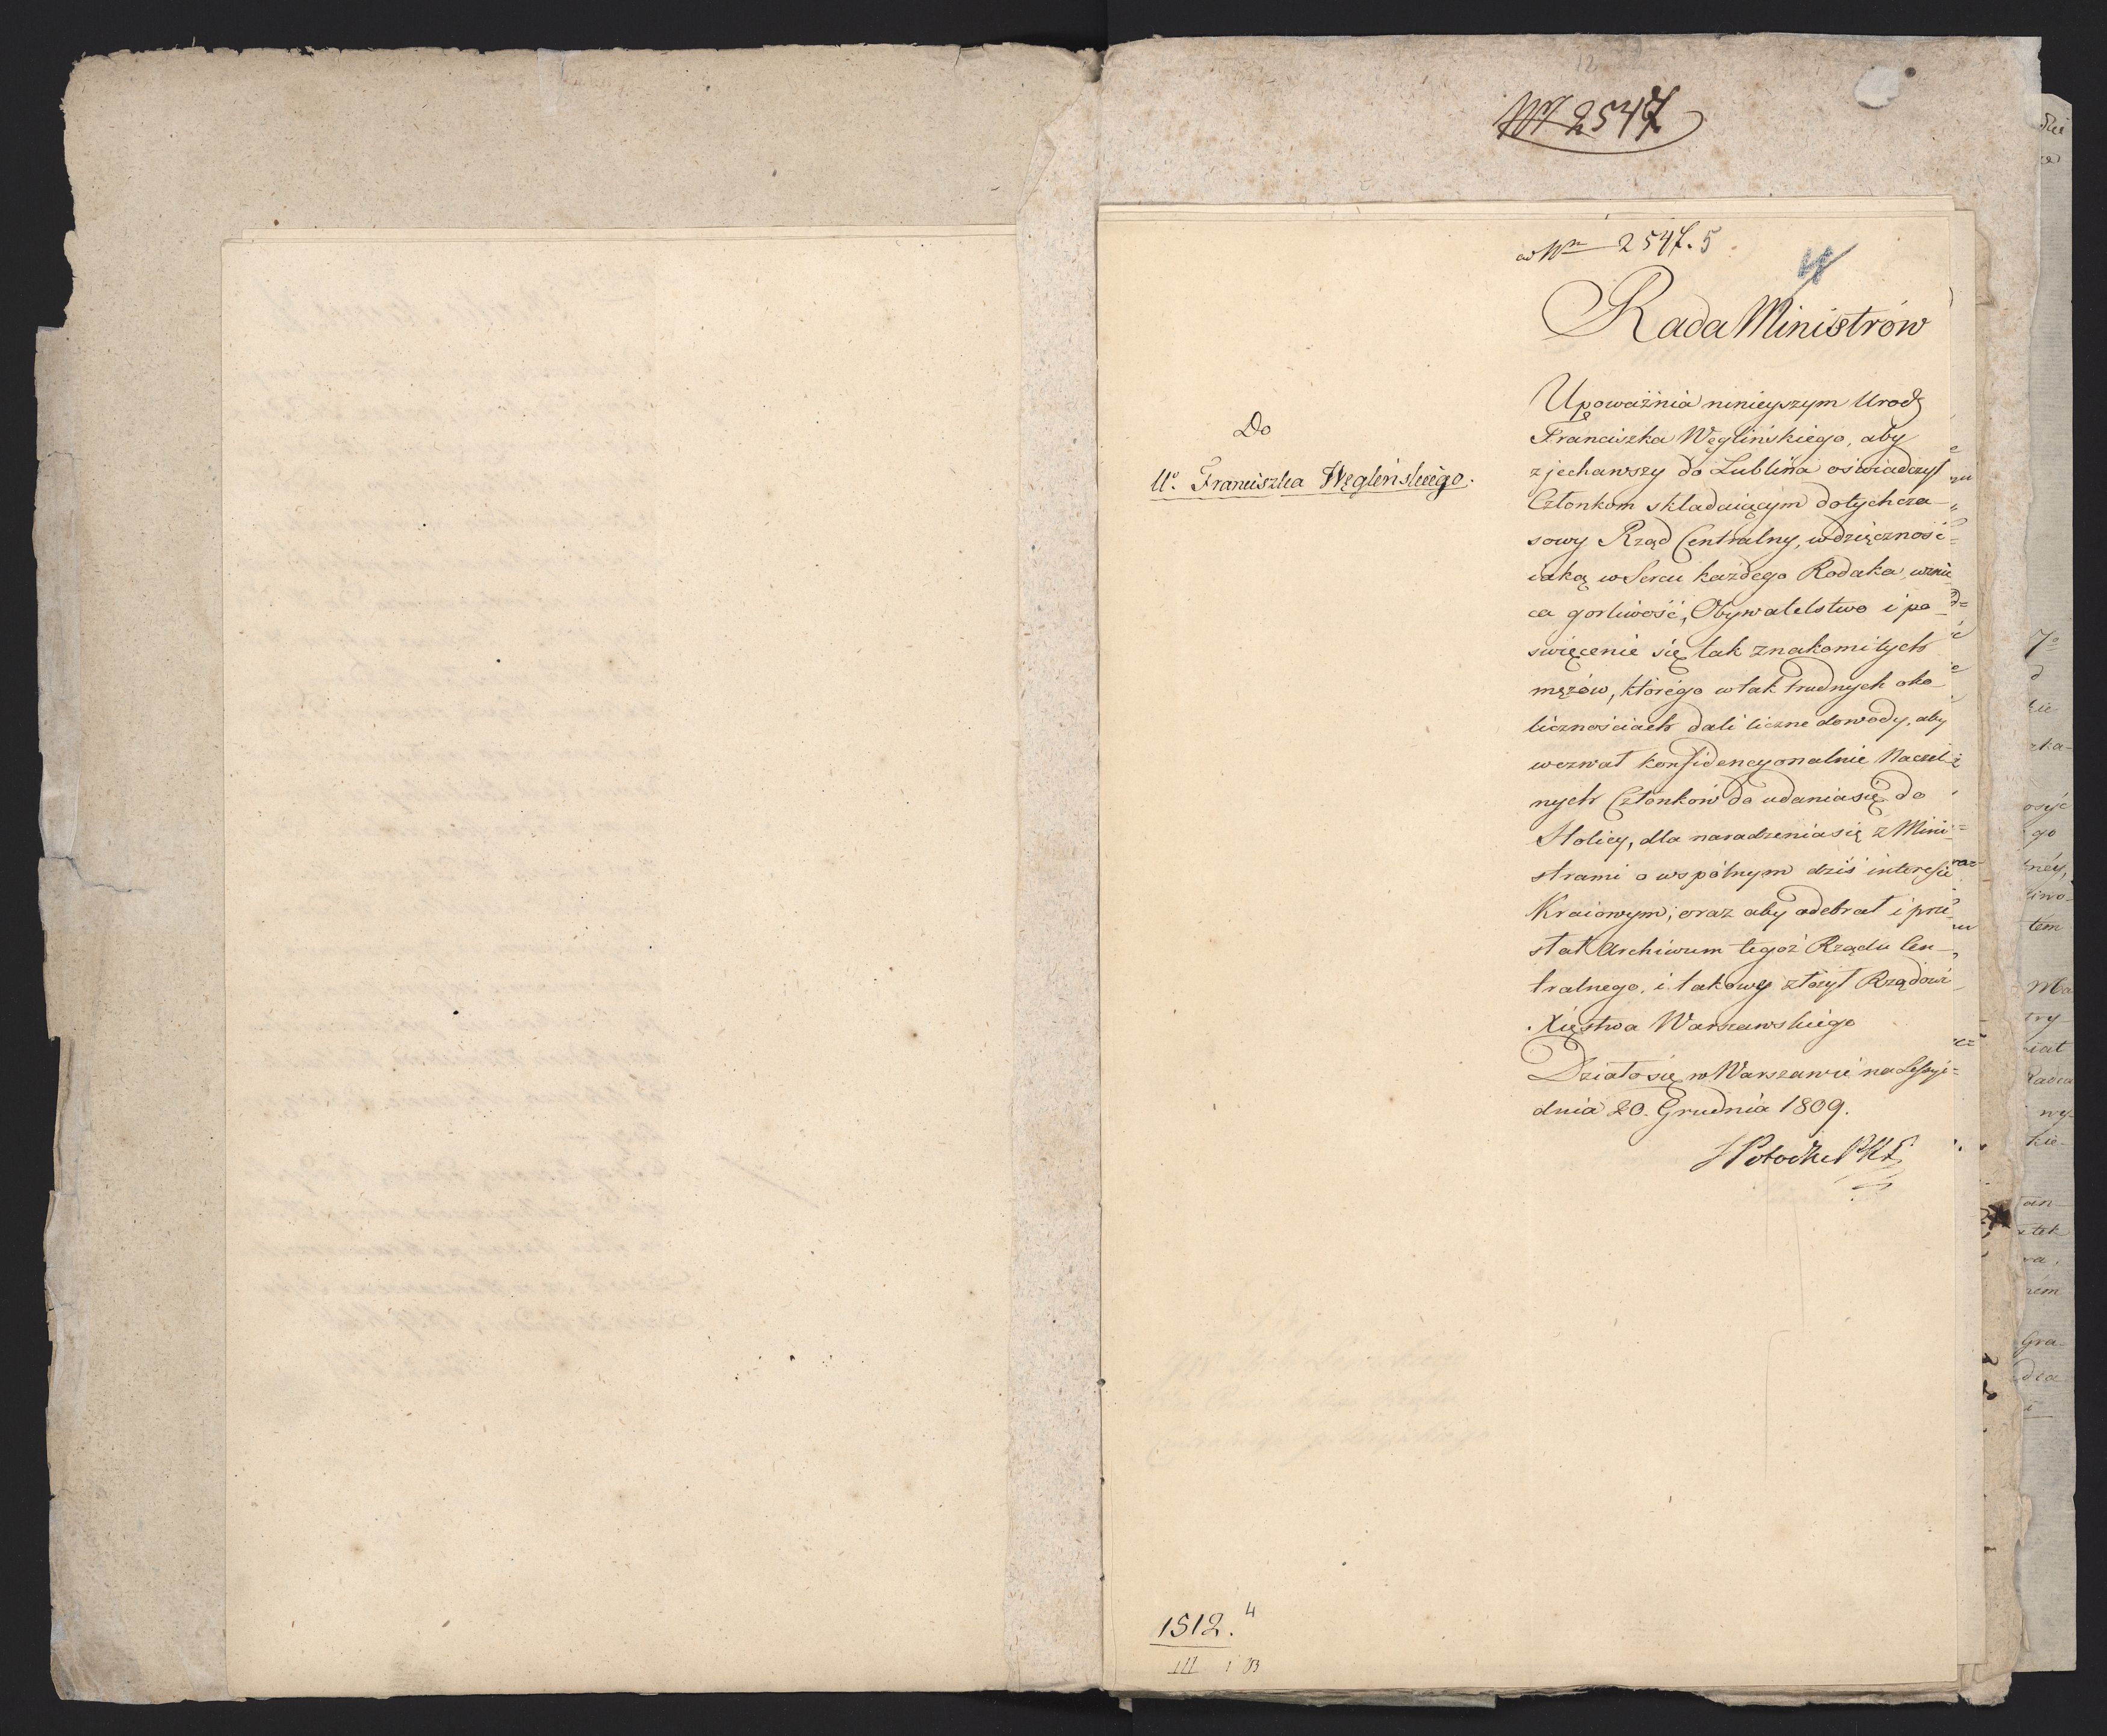 12
Nr 2547
ad Nrn 2547. 5
Rada Ministrów
Do
Uo. Franciszka Węgleńskiego.
Upoważnia ninieyszym Urodz
Franciszka Węglińskiego, aby
zjechawszy do Lublina oświadczył
Członkom składaiącym dotychcza-
sowy Rząd Centralny, wdzięczność
iaką w Sercu każdego Rodaka, wznie
ca gorliwość, Obywatelstwo i po-
święcenie się tak znakomitych
mężów, którego w tak trudnych oko
licznościach dali liczne dowody, aby
wezwał konfidencyonalnie Naczel-
nych Członków do udania się do
Stolicy, dla naradzenia się z Mini-
strami o wspólnym dziś interesie
Kraiowym; oraz aby odebrał i prze-
słał Archiwum tegoż Rządu Cen-
tralnego, i takowy złożył Rządowi
Xięstwa Warszawskiego
Działo się w Warszawie na Sessyi
dnia 20. Grudnia 1809.
SPotocki
1512. 4
III